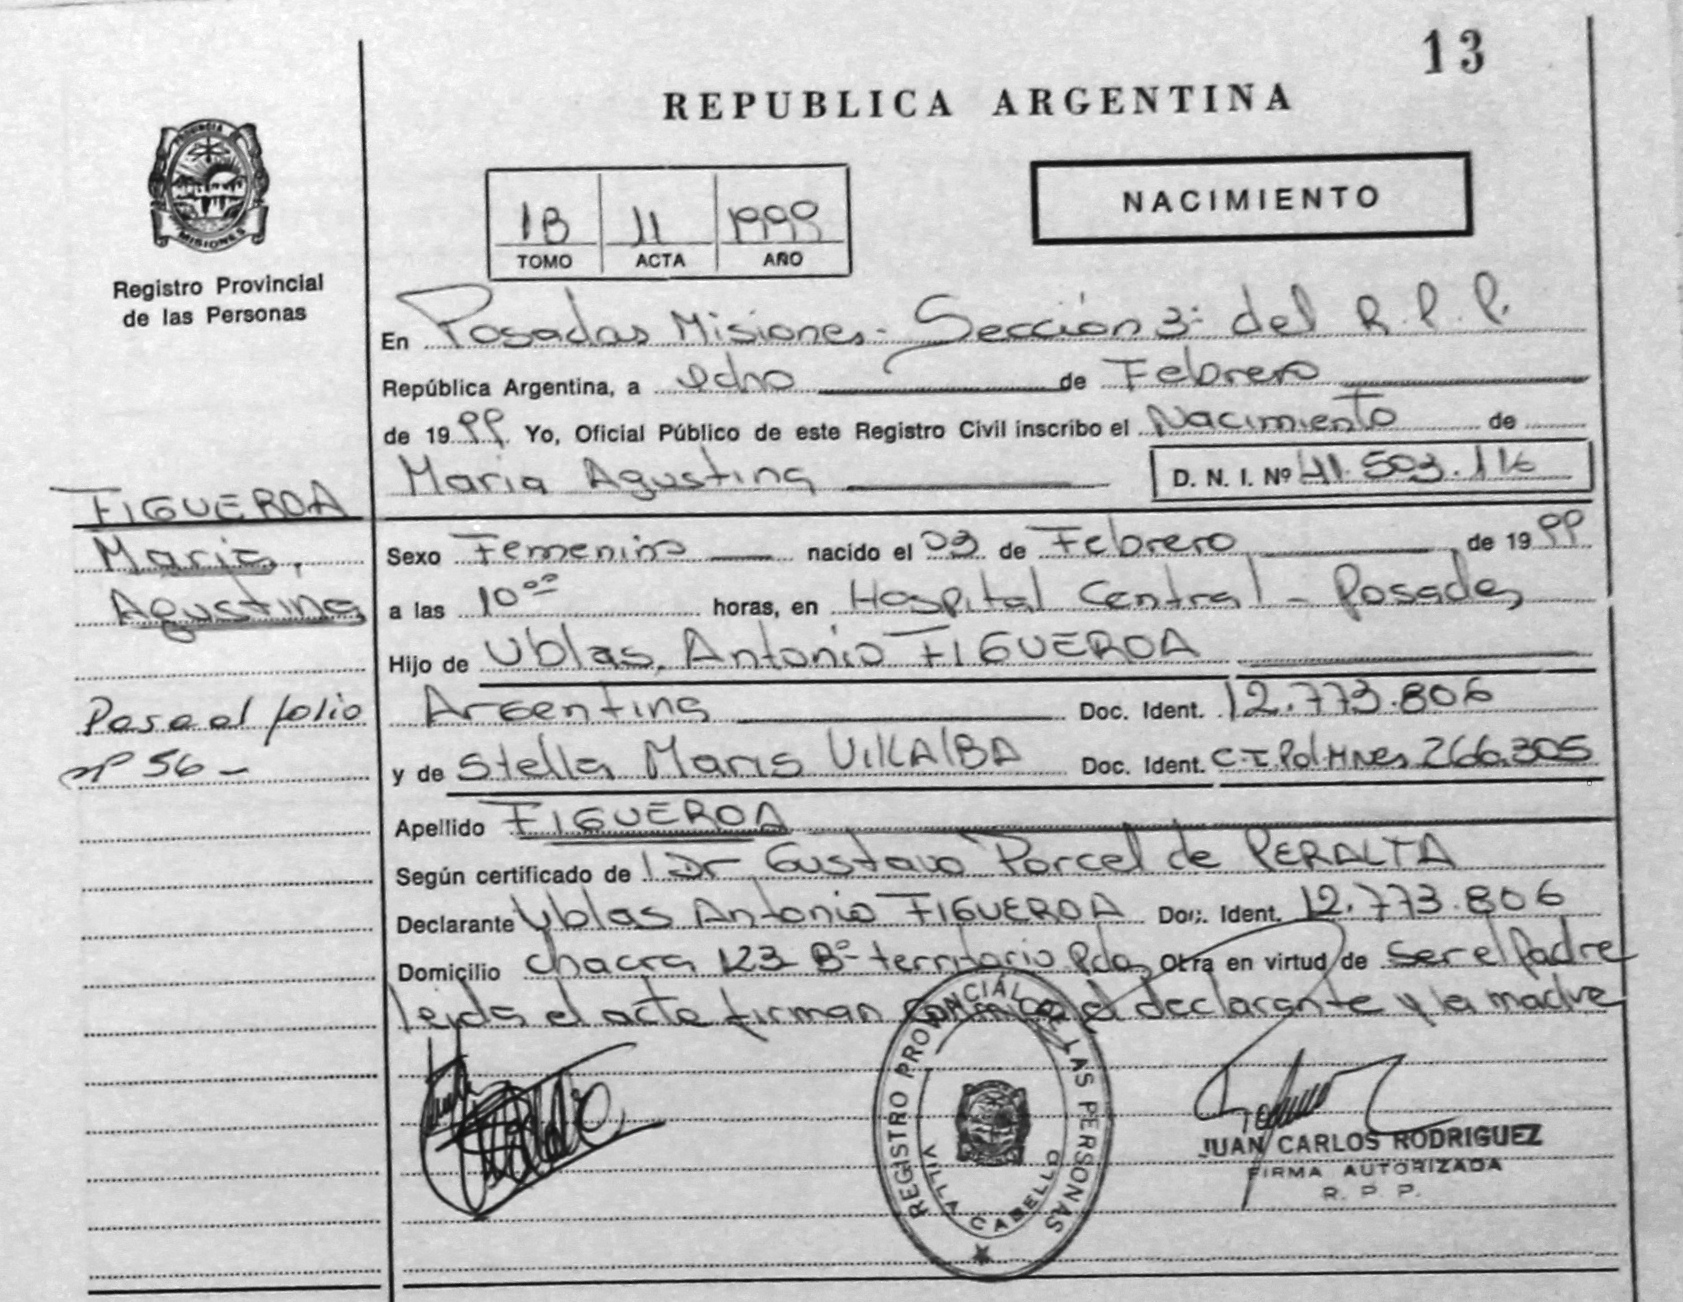 13
REPUBLICA ARGENTINA
PROVINCIA DE
MISIONES
Registro Provincial
de las Personas
NACIMIENTO
1B 11 1999
TOMO ACTA AÑO
En Posadas Misiones - Sección 3ª del R.P.P.
República Argentina, a ocho de Febrero
de 1999 Yo, Oficial Público de este Registro Civil inscribo el Nacimiento de
Maria Agustina D. N. I. Nº 41.503.116
FIGUEROA
Maria,
Agustina
Sexo Femenino nacido el 03 de Febrero de 1999
a las 10⁰⁰ horas, en Hospital Central - Posadas
Hijo de Ublas Antonio FIGUEROA
Pasa al folio
nº 56 -
Argentina Doc. Ident. 12.773.806
y de Stella Maris VillAlBA Doc. Ident. C.I. Pol Mnes 266.305
Apellido FIGUEROA
Según certificado de l Dr Gustavo Porcel de PERALTA
Declarante Ublas Antonio FIGUEROA Doc. Ident. 12.773.806
Domicilio chacra 123 Bº territorio Pdas Otra en virtud de ser el Padre
leida el acta firman conmigo el declarante y la madre
REGISTRO PROVINCIAL DE LAS PERSONAS
VILLA CABELLO
JUAN CARLOS RODRIGUEZ
FIRMA AUTORIZADA
R. P. P.